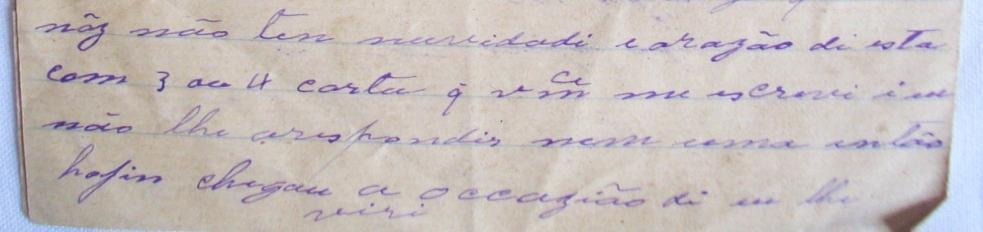 nóz não ten nuvidadi e arazão di esta
com 3 ou 4 carta q̃ vm̃ce me escrevi i eu
não lhe arespondir nem uma então
hojin chegau a occazião di eu lhe
viri